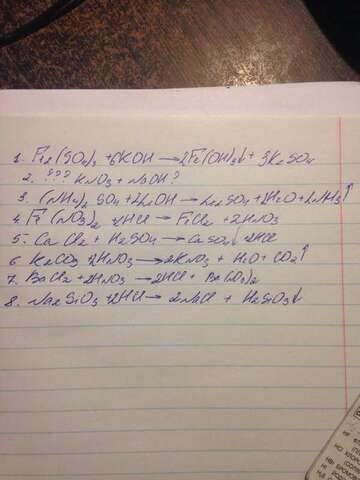 1. Fe2(SO4)3 +6KOH → 2Fe(OH)3↓ + 3K2SO4
2. ??? KNO3 + NaOH?
3. (NH4)2 SO4 +2LiOH → Li2SO4 +2H2O +2NH3↑
4. Fe (NO3)2 +2HCl → FeCl2 +2HNO3
5. CaCl2 + H2SO4 → CaSO4↓ 2HCl
6. K2CO3 +2HNO3 → 2KNO3 + H2O + CO2↑
7. BaCl2 +2HNO3 → 2HCl + Ba(NO3)2
8. Na2SiO3 +2HCl → 2NaCl + H2SiO3↓